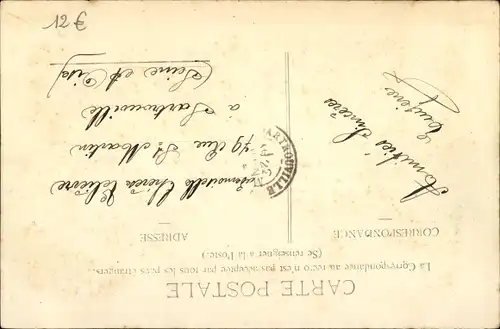 12 €
CARTE POSTALE
La Correspondance au recto n'est pas acceptée par tous les pays étrangers.
(Se renseigner à la Poste.)
CORRESPONDANCE
ADRESSE
Amitiés Sincères
Eugène
Mademoiselle
79 Rue St Martin
à Sartrouville
(Seine et Oise)
SARTROUVILLE